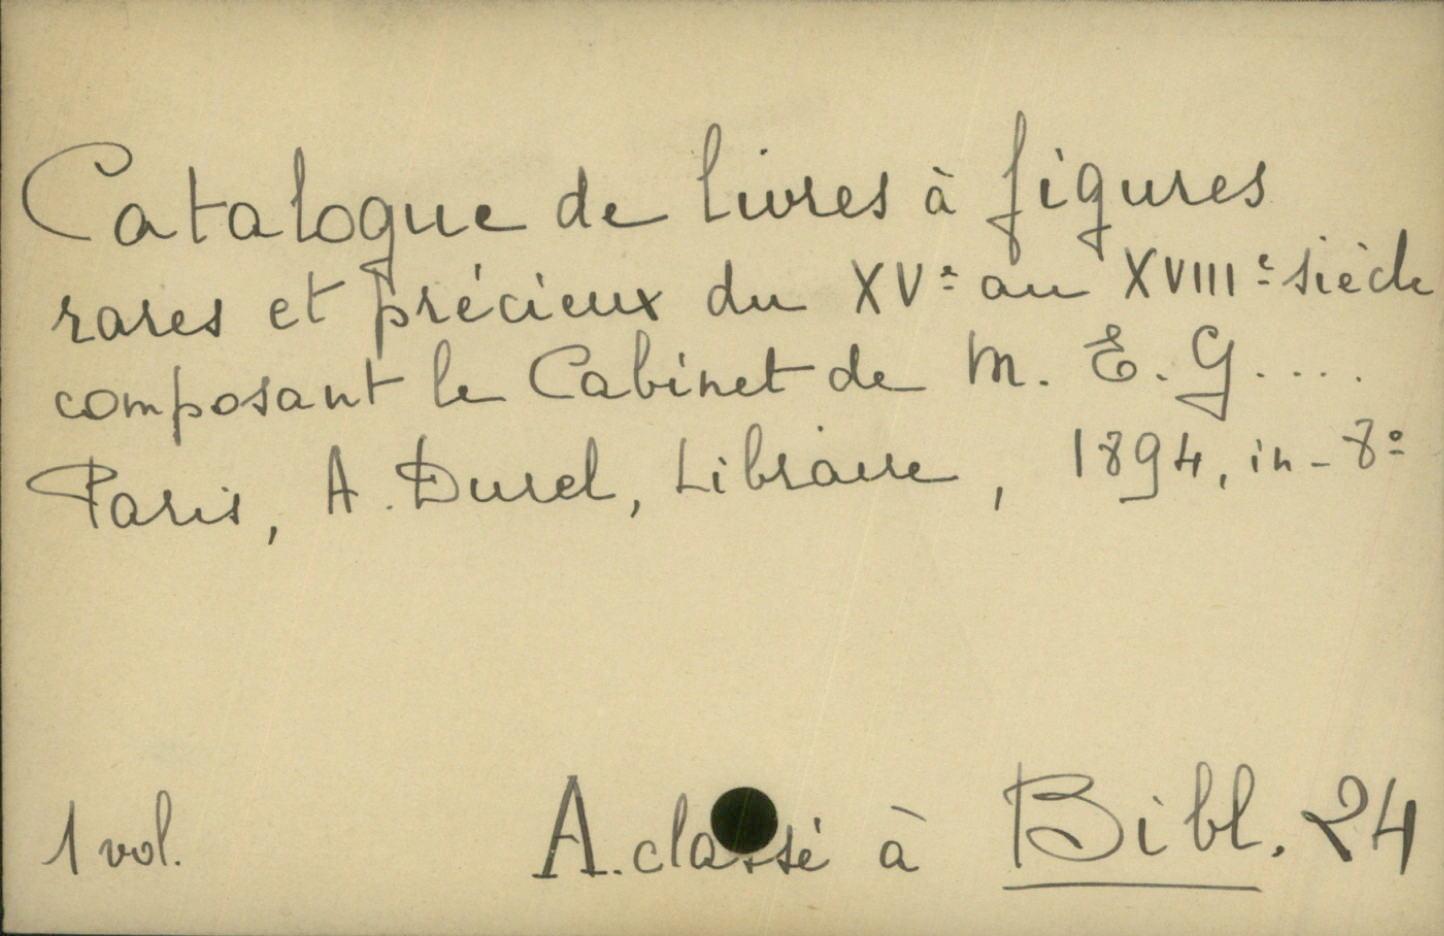 Catalogue de livres à figures
rares et précieux du XVe au XVIIIe siècle
composant le Cabinet de M. E. G....
Paris, A. Durel, Libraire, 1894, in-8º
1 vol. A. classé à Bibl. 24